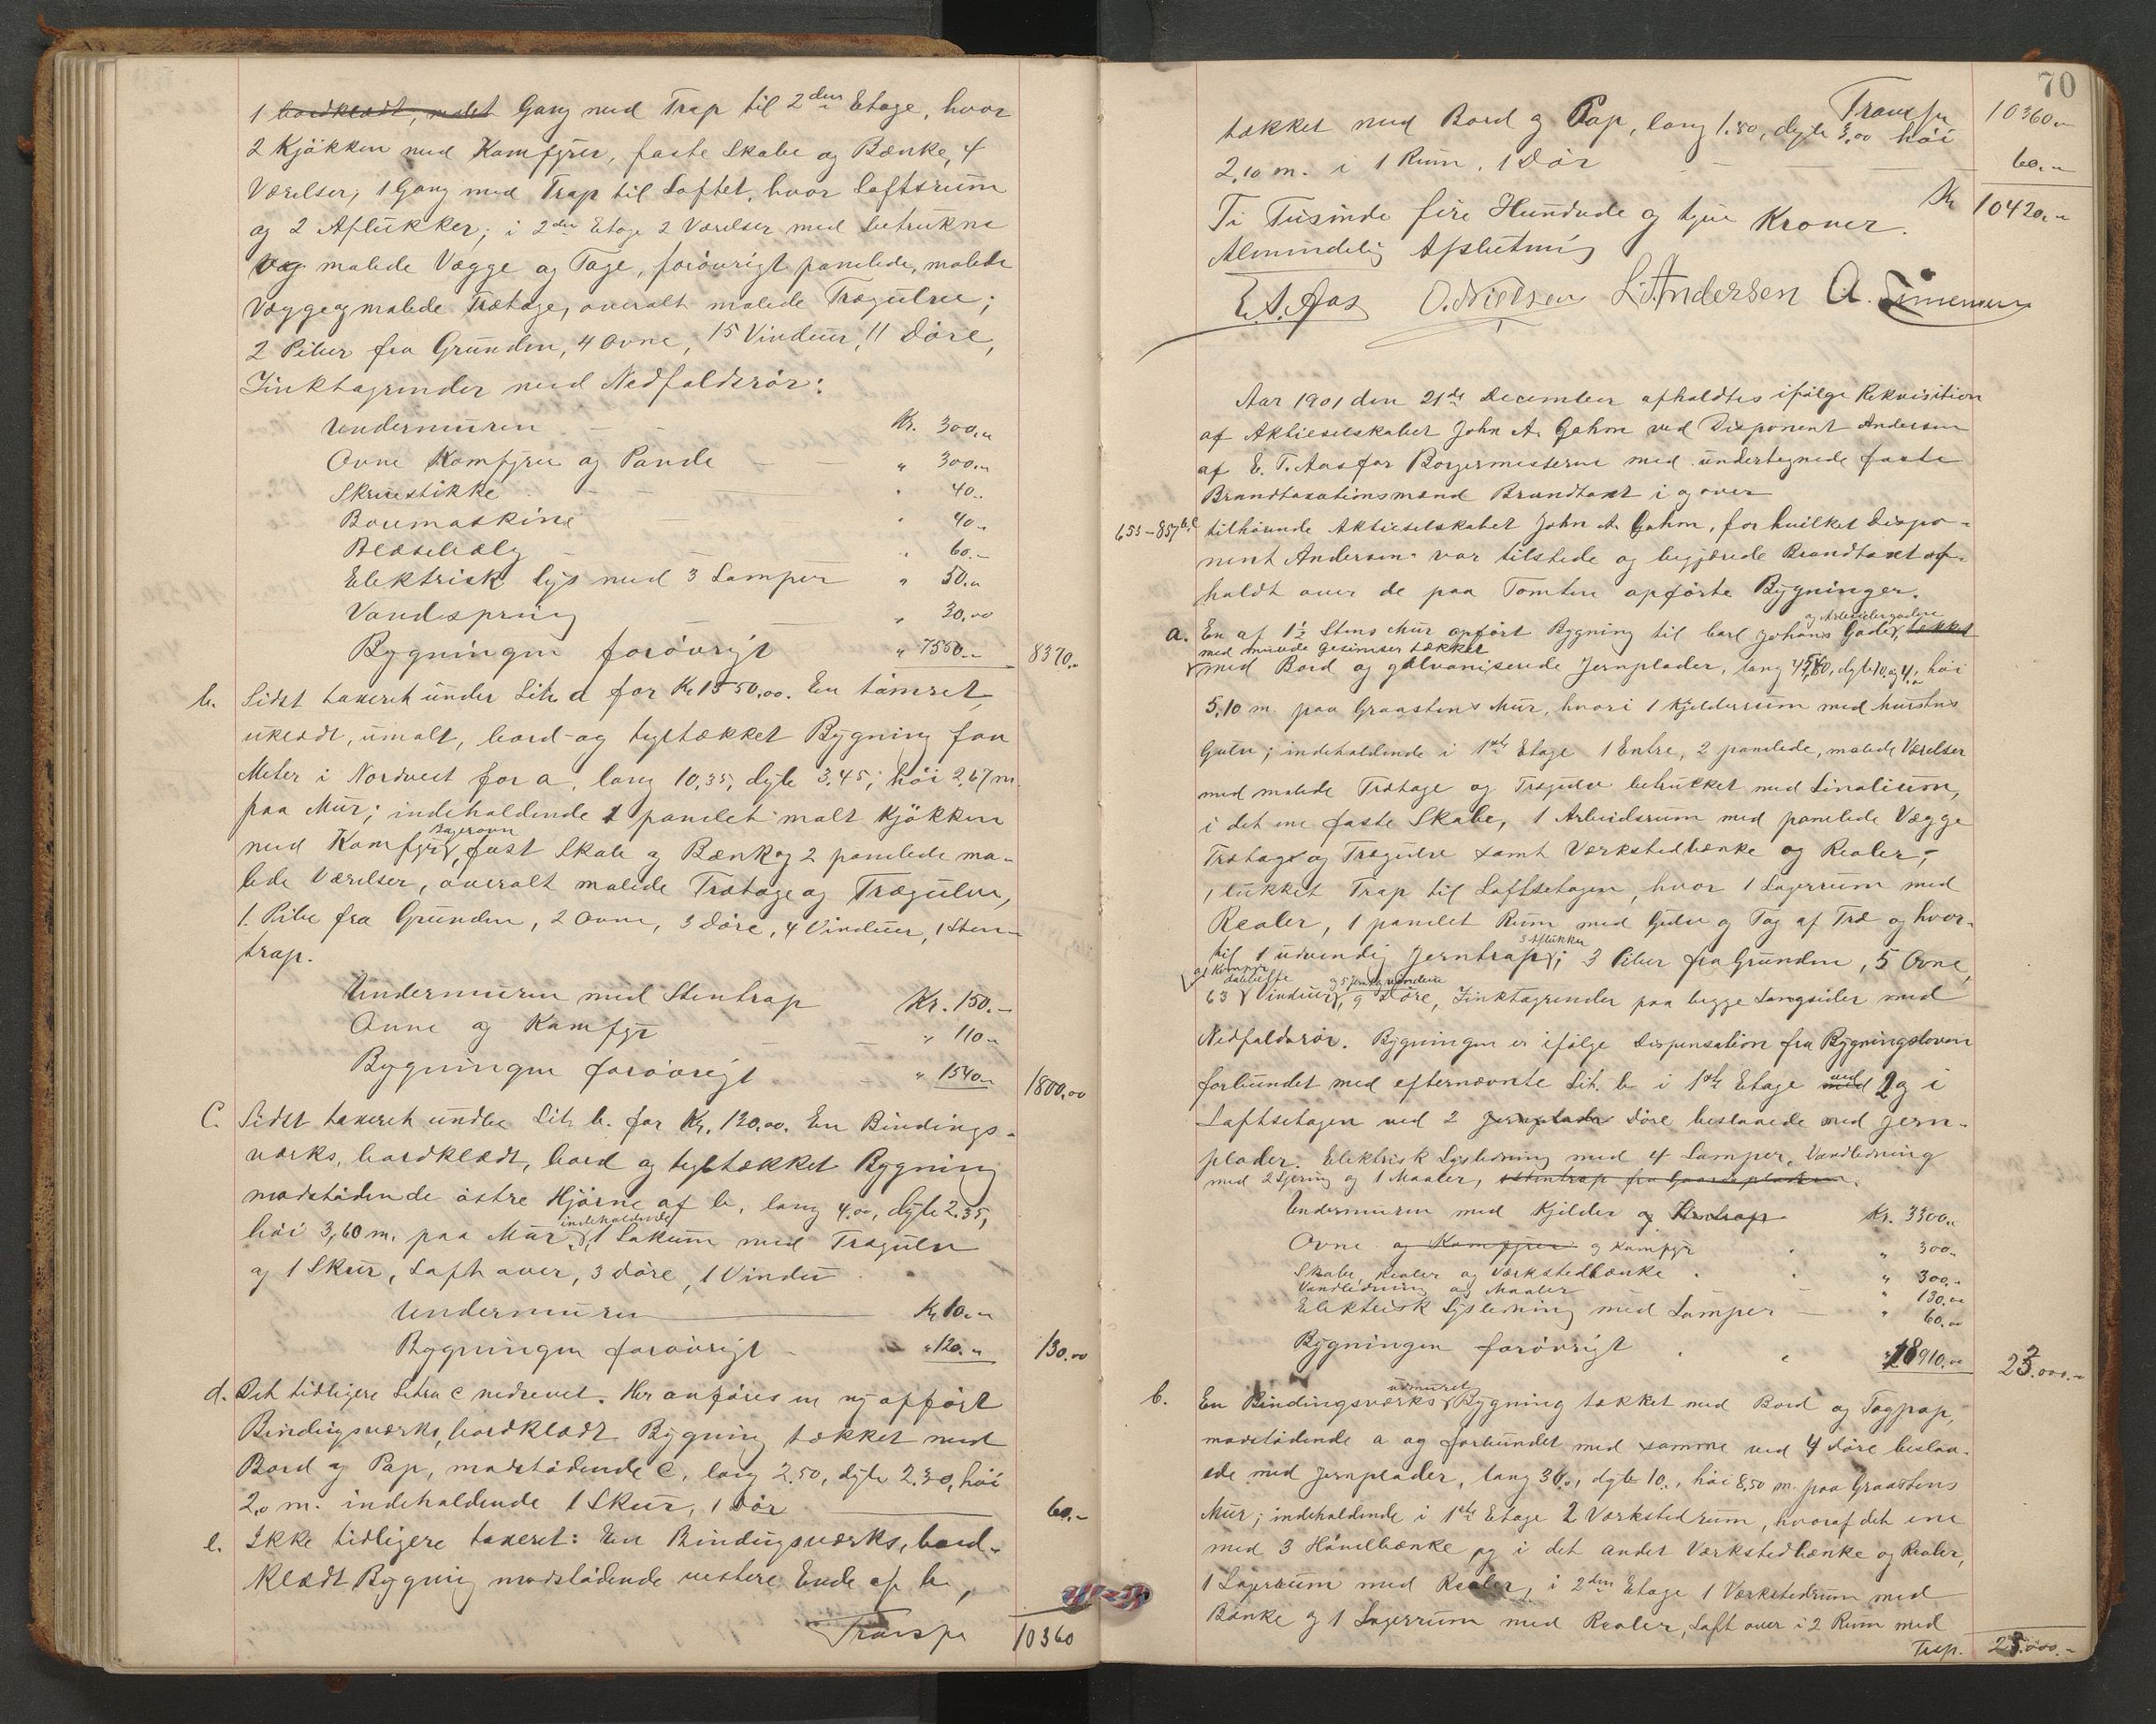 1 bordklædt, malet Gang med Trap til 2den Etage, hvor
2 Kjøkken med Komfyrer, faste Skabe og Bænke, 4
Værelser, 1 Gang med Trap til Loftet, hvor Loftsrum
og 2 Aflukker; i 2den Etage 2 Værelser med betrukne
og malede Vægge og Tage, forøvrigt panelede, malede
Vægge og malede Trætage, overalt malede Trægulve;
2 Piber fra Grunden, 4 Ovne, 15 Vinduer, 11 Døre,
Zinktagrender med Nedfaldsrør:
Undermuren Kr. 300,"
Ovne Komfyrer og Pande " 300,"
Skruestikke " 40"
Boremaskine " 40"
Blæsebælg " 60.-
Elektrisk Lys med 3 Lamper " 50."
Vandspring " 30,00
Bygningen forøvrigt " 7550.- 8370,-
b. Sidst taxeret under Litr. a for Kr 1550,00. En tømret
uklædt, umalt, bord- og tegltækket Bygning faa
Meter i Nordvest for a, lang 10,35, dyb 3,45, høi 2,67 m
paa Mur; indeholdende 1 panelet malt Kjøkken
Bagerovn
med Komfyr, fast Skab og Bænk og 2 panelede ma-
lede Værelser, overalt malede Trætage og Trægulve,
1 Pibe fra Grunden, 2 Ovne, 3 Døre, 4 Vinduer, 1 Sten-
trap.
Undermuren med Stentrap Kr. 150.-
Ovne og Komfyr " 110"
Bygningen forøvrigt " 1540" 1800,00
C. Sidst taxeret under Litr. b. for Kr. 120,00. En Bindings-
værks, bordklædt, bord og tegltækket Bygning
modstødende østre Hjørne af b, lang 4,00, dyb 2,35,
indeholdende
høi 3,60 m. paa Mur, 1 Lokum med Trægulv
og 1 Skur, Loft over, 3 Døre, 1 Vindu
Undermuren Kr 10.-
Bygningen forøvrigt - " 120." 130.00
d. Det tidligere Litra C nedrevet. Her anføres en ny opført
Bindingsværks, bordklædt Bygning tækket med
Bord og Pap, modstødende C, lang 2.50, dyb 2.30, høi
2,0 m. indeholdende 1 Skur, 1 Dør 60.-
e. Ikke tidligere taxeret: En Bindingsværks, bord-
klædt Bygning modstødende vestre Ende af b,
Transp 10360
70
Transp 10360"
tækket med Bord og Pap, lang 1.80, dyb 3,00 høi
2,10 m. i 1 Rum, 1 Dør 60.-
Ti Tusinde fire Hundrede og tyve Kroner. Kr 10420,-
Almindelig Afslutning
E.T. Aas O. Nielsen L. Andersen A. Simensen
Aar 1901 den 21de December afholdtes ifølge Rekvisition
af Aktieselskabet John A. Gahm ved Disponent Andersen
af E. T. Aas for Borgermesteren med undertegnede faste
Brandtaxationsmænd Brandtaxt i og over
653-857 b.c tilhørende Aktieselskabet John A. Gahm, for hvilket Dispo-
nent Andersen var tilstede og begjærede Brandtaxt af-
holdt over de paa Tomten opførte Bygninger.
og Arbeidergaden
a. En af 1½ Stens Mur opført Bygning til Carl Johans Gade, tækket
med murede Gesimser tækket
med Bord og galvaniserede Jernplader, lang 45,80, dyb 10, og 4, høi
5,10 m. paa Graastens Mur, hvori 1 Kjelderrum med Murstens
Gulv; indeholdende i 1ste Etage 1 Entre, 2 panelede, malede Værelser
med malede Trætage og Trægulve betrukket med Linolium,
i det ene faste Skabe, 1 Arbeidsrum med panelede Vægge
Trætage og Trægulve samt Værkstedbænke og Reoler,
1 lukket Trap til Loftsetagen, hvor 1 Lagerrum med
Reoler, 1 panelet Rum med Gulv og Tag af Træ og hvor-
3 Aflukker
til 1 udvendig Jerntrap; 3 Piber fra Grunden, 5 Ovne,
og Komfyr
dobbelte og 5 Jernvinduer
63 Vinduer, 9 Døre, Zinktagrender paa begge Langsider med
Nedfaldsrør. Bygningen er ifølge Dispensation fra Bygningsloven
forbundet med efternævnte Lit. b i 1ste Etage med ved 2 og i
Loftsetagen ved 2 Jernplader Døre beslaaede med Jern-
plader. Elektrisk Lysledning med 4 Lamper, Vandledning
med 2 Spring og 1 Maaler, 1 Stentrap fra Gaardspladsen.
Undermuren med Kjelder og Stentrap Kr. 3300,"
Ovne og Komfyrer og Komfyr " 300"
Skabe, Reoler og Værkstedbænke " 300,-
Vandledning og Maaler " 130.00
Elektrisk Lysledning med Lamper " 60.00
Bygningen forøvrigt " 18910.00 23.000.-
udmuret
b. En Bindingsværks Bygning tækket med Bord og Tagpap,
modstødende a og forbundet med samme ved 4 Døre beslaa-
ede med Jernplader, lang 30,0, dyb 10,, høi 8,50 m. paa Graastens
Mur; indeholdende i 1ste Etage 2 Værkstedrum, hvoraf det ene
med 3 Høvelbænke og i det andet Værkstedbænke og Reoler,
1 Lagerrum med Reoler, i 2den Etage 1 Værkstedrum med
Bænke og 1 Lagerrum med Reoler, Loft over i 2 Rum med
Trsp. 23.000.-